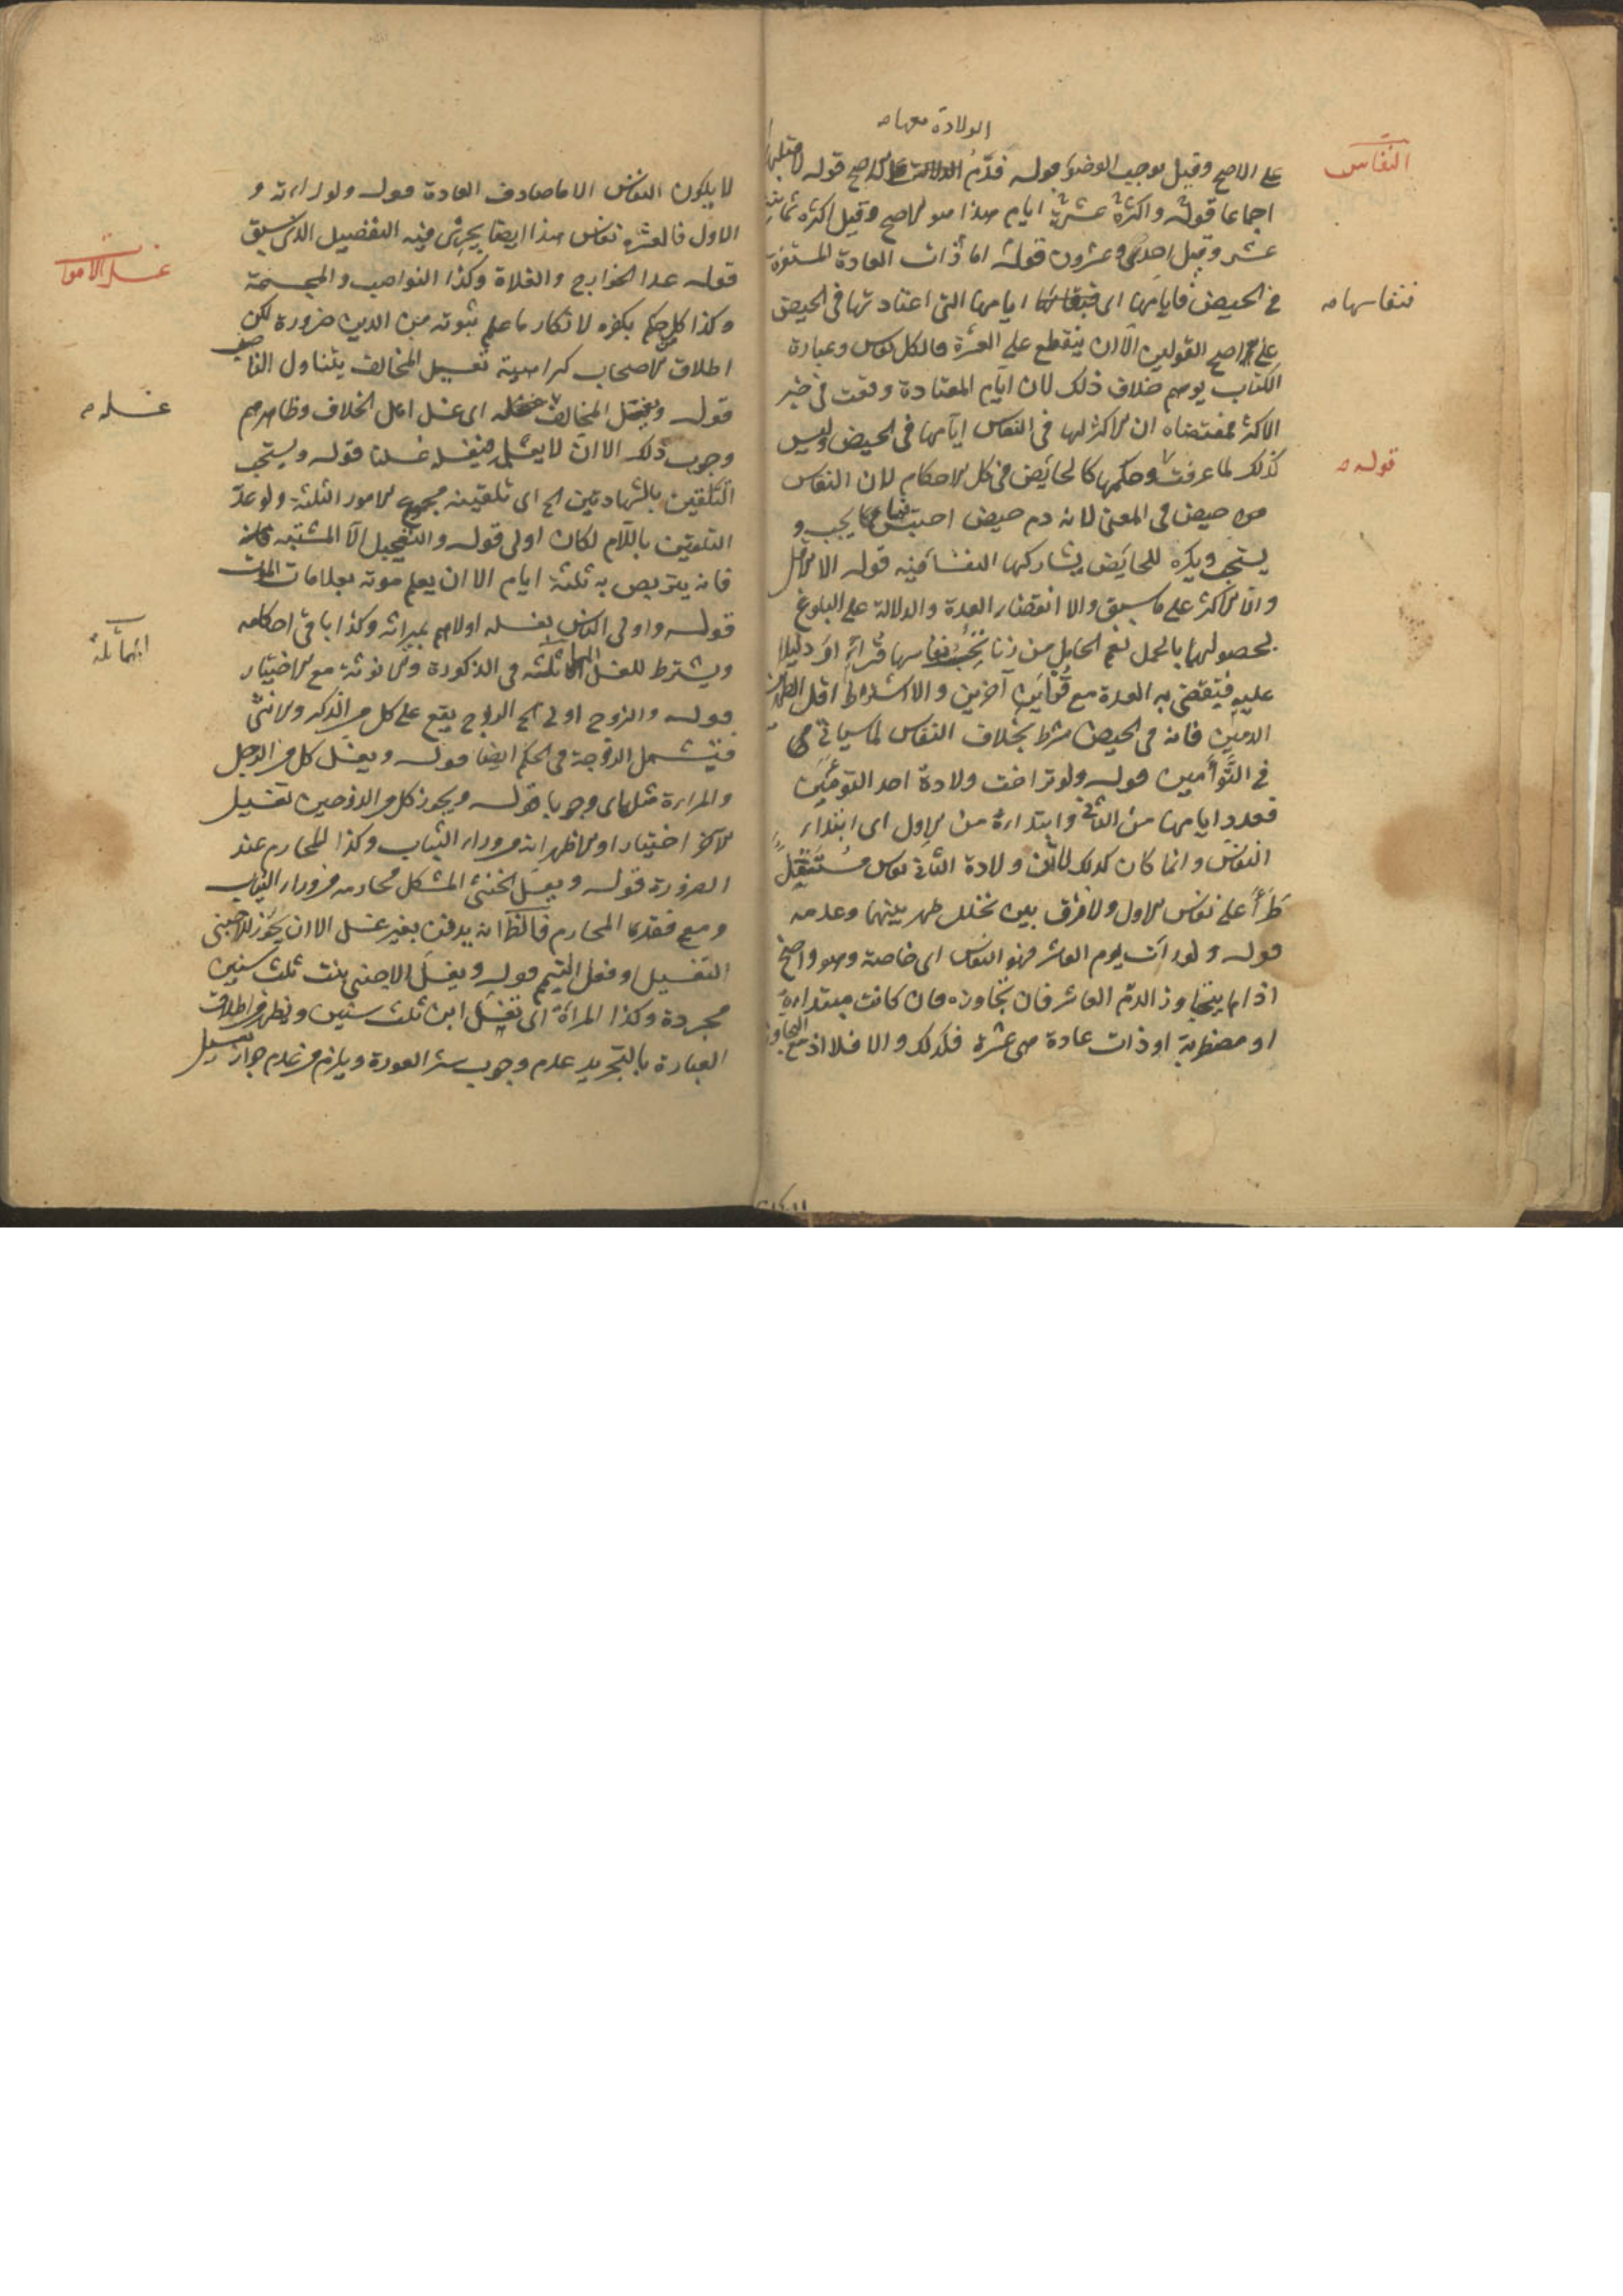 الولادة معها صح
النفاس
على الاصح وقيل يوجب الوضوء قوله فدم على الاصح قوله لا قبلها
اجماعا قوله واكثره عشرة ايام هذا هو الاصح وقيل اكثره ثمانية
عشر وقيل احدى وعشرون قوله اما ذات العادة المستقرة
في الحيض فايامها اى ايامها التى اعتادتها فى الحيض
فنفاسها صح
على اصح القولين الا ان ينقطع على العشرة فالكل نفاس وعبارة
الكتاب يوهم خلاف ذلك لان ايام المعتادة وقعت فى خبر
الاكثر فمقتضاه ان الاكثر لها فى النفاس ايامها فى الحيض وليس
كذلك لما عرفت وحكمها كالحايض فى كل الاحكام لان النفاس
قوله صح
حيض فى المعنى لانه دم حيض احتبس يجب و
يستحب ويكره للحايض يشاركها النفساء فيه قوله الا الاقل
والا الاكثر على ما سبق والا انقضاء العدة والدلالة على البلوغ
لحصولهما بالحمل نعم الحامل من زنا نفاسها قرائر دليلا
عليه فتنقضى به العدة مع قرأين آخرين والا اشتراط اقل الطهر بين
الدمين فانه فى الحيض شرط بخلاف النفاس لما سياتى
فى التوأمين قوله ولو تراخت ولادة احد التوئمين
فعدد ايامها من الثانى وابتداءه من الاول اى ابتداء
النفاس وانما كان كذلك لان ولادة الثانى نفاس مستقل
طرأ على نفاس الاول ولا فرق بين تخلل طهر بينهما وعدمه
قوله ولو رات يوم العاشر فهو النفاس اى خاصة وهو واضح
اذا لم يتجاوز الدم العاشر فان تجاوزه فان كانت مبتداءة
او مضطربة او ذات عادة هى عشرة فكذلك والا فلا اذ مع التجاوز
لا يكون النفاس الا ما صادف العادة قوله ولو راته و
الاول فالعشرة نفاس هذا ايضا يجرى فيه التفصيل الذى سبق
غسل الاموات
قوله عدا الخوارج والغلاة وكذا النواصب والمجسمة
وكذا كل من حكم بكفره لانكار ما علم ثبوته من الدين ضرورة لكن
اطلاق الاصحاب كراهية تغسيل المخالف يتناول الناصب
قوله ويغسل المخالف غسله اى غسل اهل الخلاف وظاهرهم
غسله صح
وجوب ذلك الا ان لا يعلم فيغسله غسلنا قوله ويستحب
التلقين بالشهادتين الخ اى تلقينه مجموع الامور الثلثة ولو عد
التلقين باللام لكان اولى قوله والتعجيل الا المشتبه
فانه يتربص به ثلثة ايام الا ان يعلم موته بعلامات الموت
قوله واولى الناس بغسله اولاهم بميراثه وكذا باقى احكامه
ويشترط للغسل المماثلة فى الذكورة والانوثة مع الاختيار
المماثلة
قوله والزوج اولى الخ الزوج يقع على كل من الذكر والانثى
فيشمل الزوجة فى الحكم ايضا قوله ويغسل كل من الرجل
والمراءة مثله اى وجوبا قوله ويجوز كل من الزوجين تغسيل
الآخر اختيارا والاظهر انه من وراء الثياب وكذا المحارم عند
الضرورة قوله ويغسل الخنثى المشكل محارمه من وراء الثياب
ومع فقد المحارم فالظ انه يدفن بغير غسل الا ان يجوز للاجنبى
التغسيل او فعل التيمم قوله ويغسل الاجنبى بنت ثلث سنين
مجردة وكذا المراة اى تغسل ابن ثلث سنين ويظهر من اطلاق
العبارة بالتجريد عدم وجوب ستر العورة ويلزم من عدم جواز تغسيل